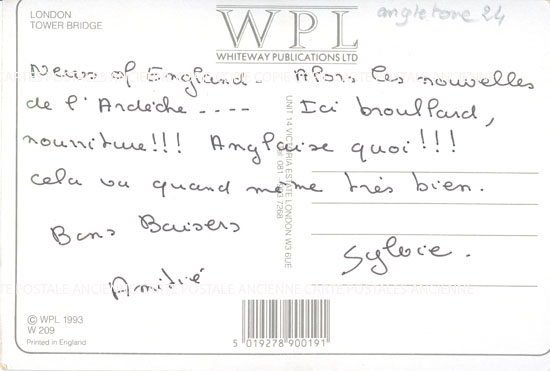 LONDON
TOWER BRIDGE
WPL
WHITEWAY PUBLICATIONS LTD
angleterre 24
News of England - Alors les nouvelles
de l'Ardèche ---- Ici brouillard,
nourriture!!! Anglaise quoi!!!
cela va quand même très bien.
Bons Baisers
Sylvie.
Amitié
UNIT 14 VICTORIA ESTATE LONDON W3 6UE
7268
CARTE POSTALE ANCIENNE CARTE POSTALE ANCIENNE
© WPL 1993
W 209
Printed in England
5 019278 900191